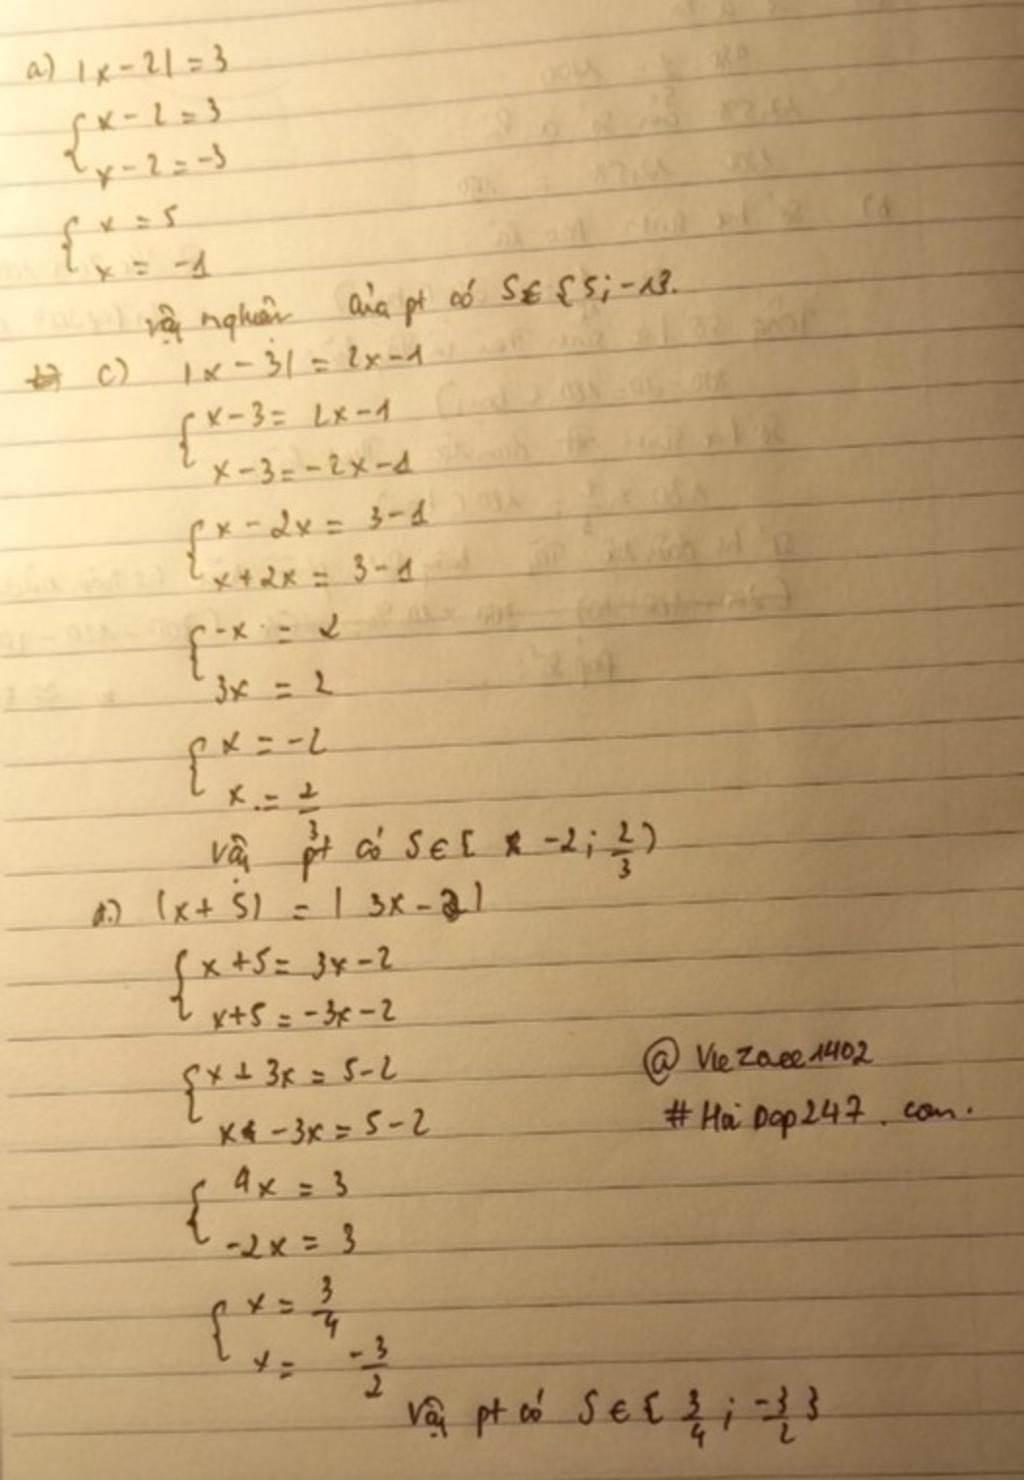 a) |x - 2| = 3
{ x - 2 = 3
x - 2 = -3
{ x = 5
x = -1
vậy nghiệm của pt có S ∈ {5; -1}.
c) |x - 3| = 2x - 1
{ x - 3 = 2x - 1
x - 3 = -2x - 1
{ x - 2x = 3 - 1
x + 2x = 3 - 1
{ -x = 2
3x = 2
{ x = -2
x = 2/3
Vậy pt có S ∈ [ -2; 2/3 )
d.) |x + 5| = | 3x - 2 |
{ x + 5 = 3x - 2
x + 5 = -3x - 2
{ x + 3x = 5 - 2
x - 3x = 5 - 2
@ Viezaee1402
# Hỏi Dap247 . com.
{ 4x = 3
-2x = 3
{ x = 3/4
x = -3/2
Vậy pt có S ∈ { 3/4 ; -3/2 }